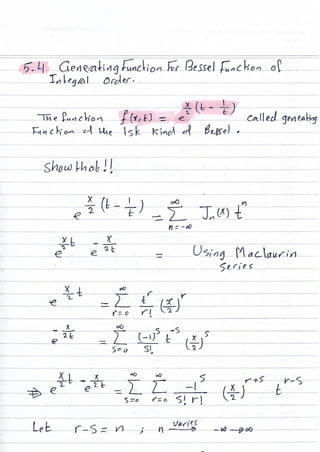 5.4 Generating Function For Bessel Function of
Integral order.
The function f(x,t) = e^{x/2 (t - 1/t)} called generating
Function of the 1st Kind of Bessel.
Show that!!
e^{x/2 (t - 1/t)} = Σ_{n=-∞}^{∞} J_n(x) t^n
e^{xt/2} e^{-x/2t} = Using Maclaurin
Series
e^{x/2 t} = Σ_{r=0}^{∞} t^r/r! (x/2)^r
e^{-x/2t} = Σ_{s=0}^{∞} (-1)^s/s! t^{-s} (x/2)^s
⇒ e^{xt/2} e^{-x/2t} = Σ_{s=0}^{∞} Σ_{r=0}^{∞} -1^s/s! r! (x/2)^{r+s} t^{r-s}
Let r-s = n ; n varies → -∞ → ∞